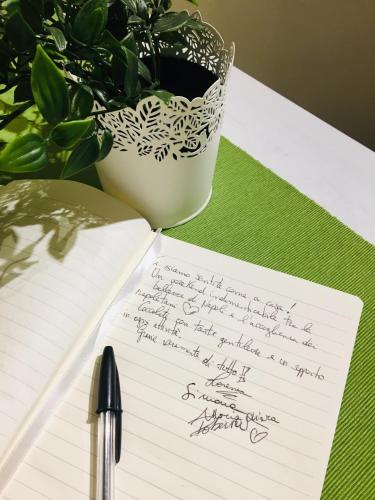 ci siamo sentite come a casa!
Un weekend indimenticabile tra le
bellezze di Napoli e l'accoglienza dei
napoletani ♡
Coccolate con tanta gentilezza e un rapporto
in ogni attimo.
Grazie veramente di tutto!!
Lorenza
Simona
Maria Chiara
Roberta ♡